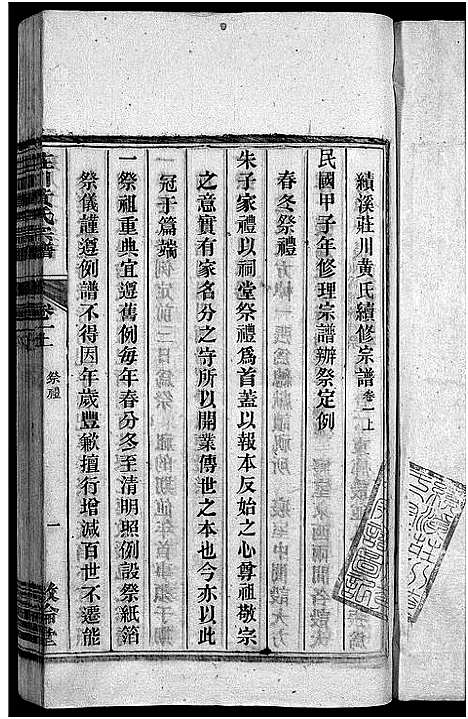 績溪莊川黃氏續修宗譜卷一上
民國甲子年修理宗譜辦祭定例
春冬祭禮
朱子家禮以祠堂祭禮爲首蓋以報本反始之心尊祖敬宗
之意實有家名分之守所以開業傳世之本也今亦以此
冠于篇端
一祭祖重典宜遵舊例每年春分冬至清明照例設祭紙箔
祭儀謹遵例譜不得因年歲豐歉擅行增減百世不遷能
莊川黃氏宗譜
卷一上
祭禮
一
敘倫堂